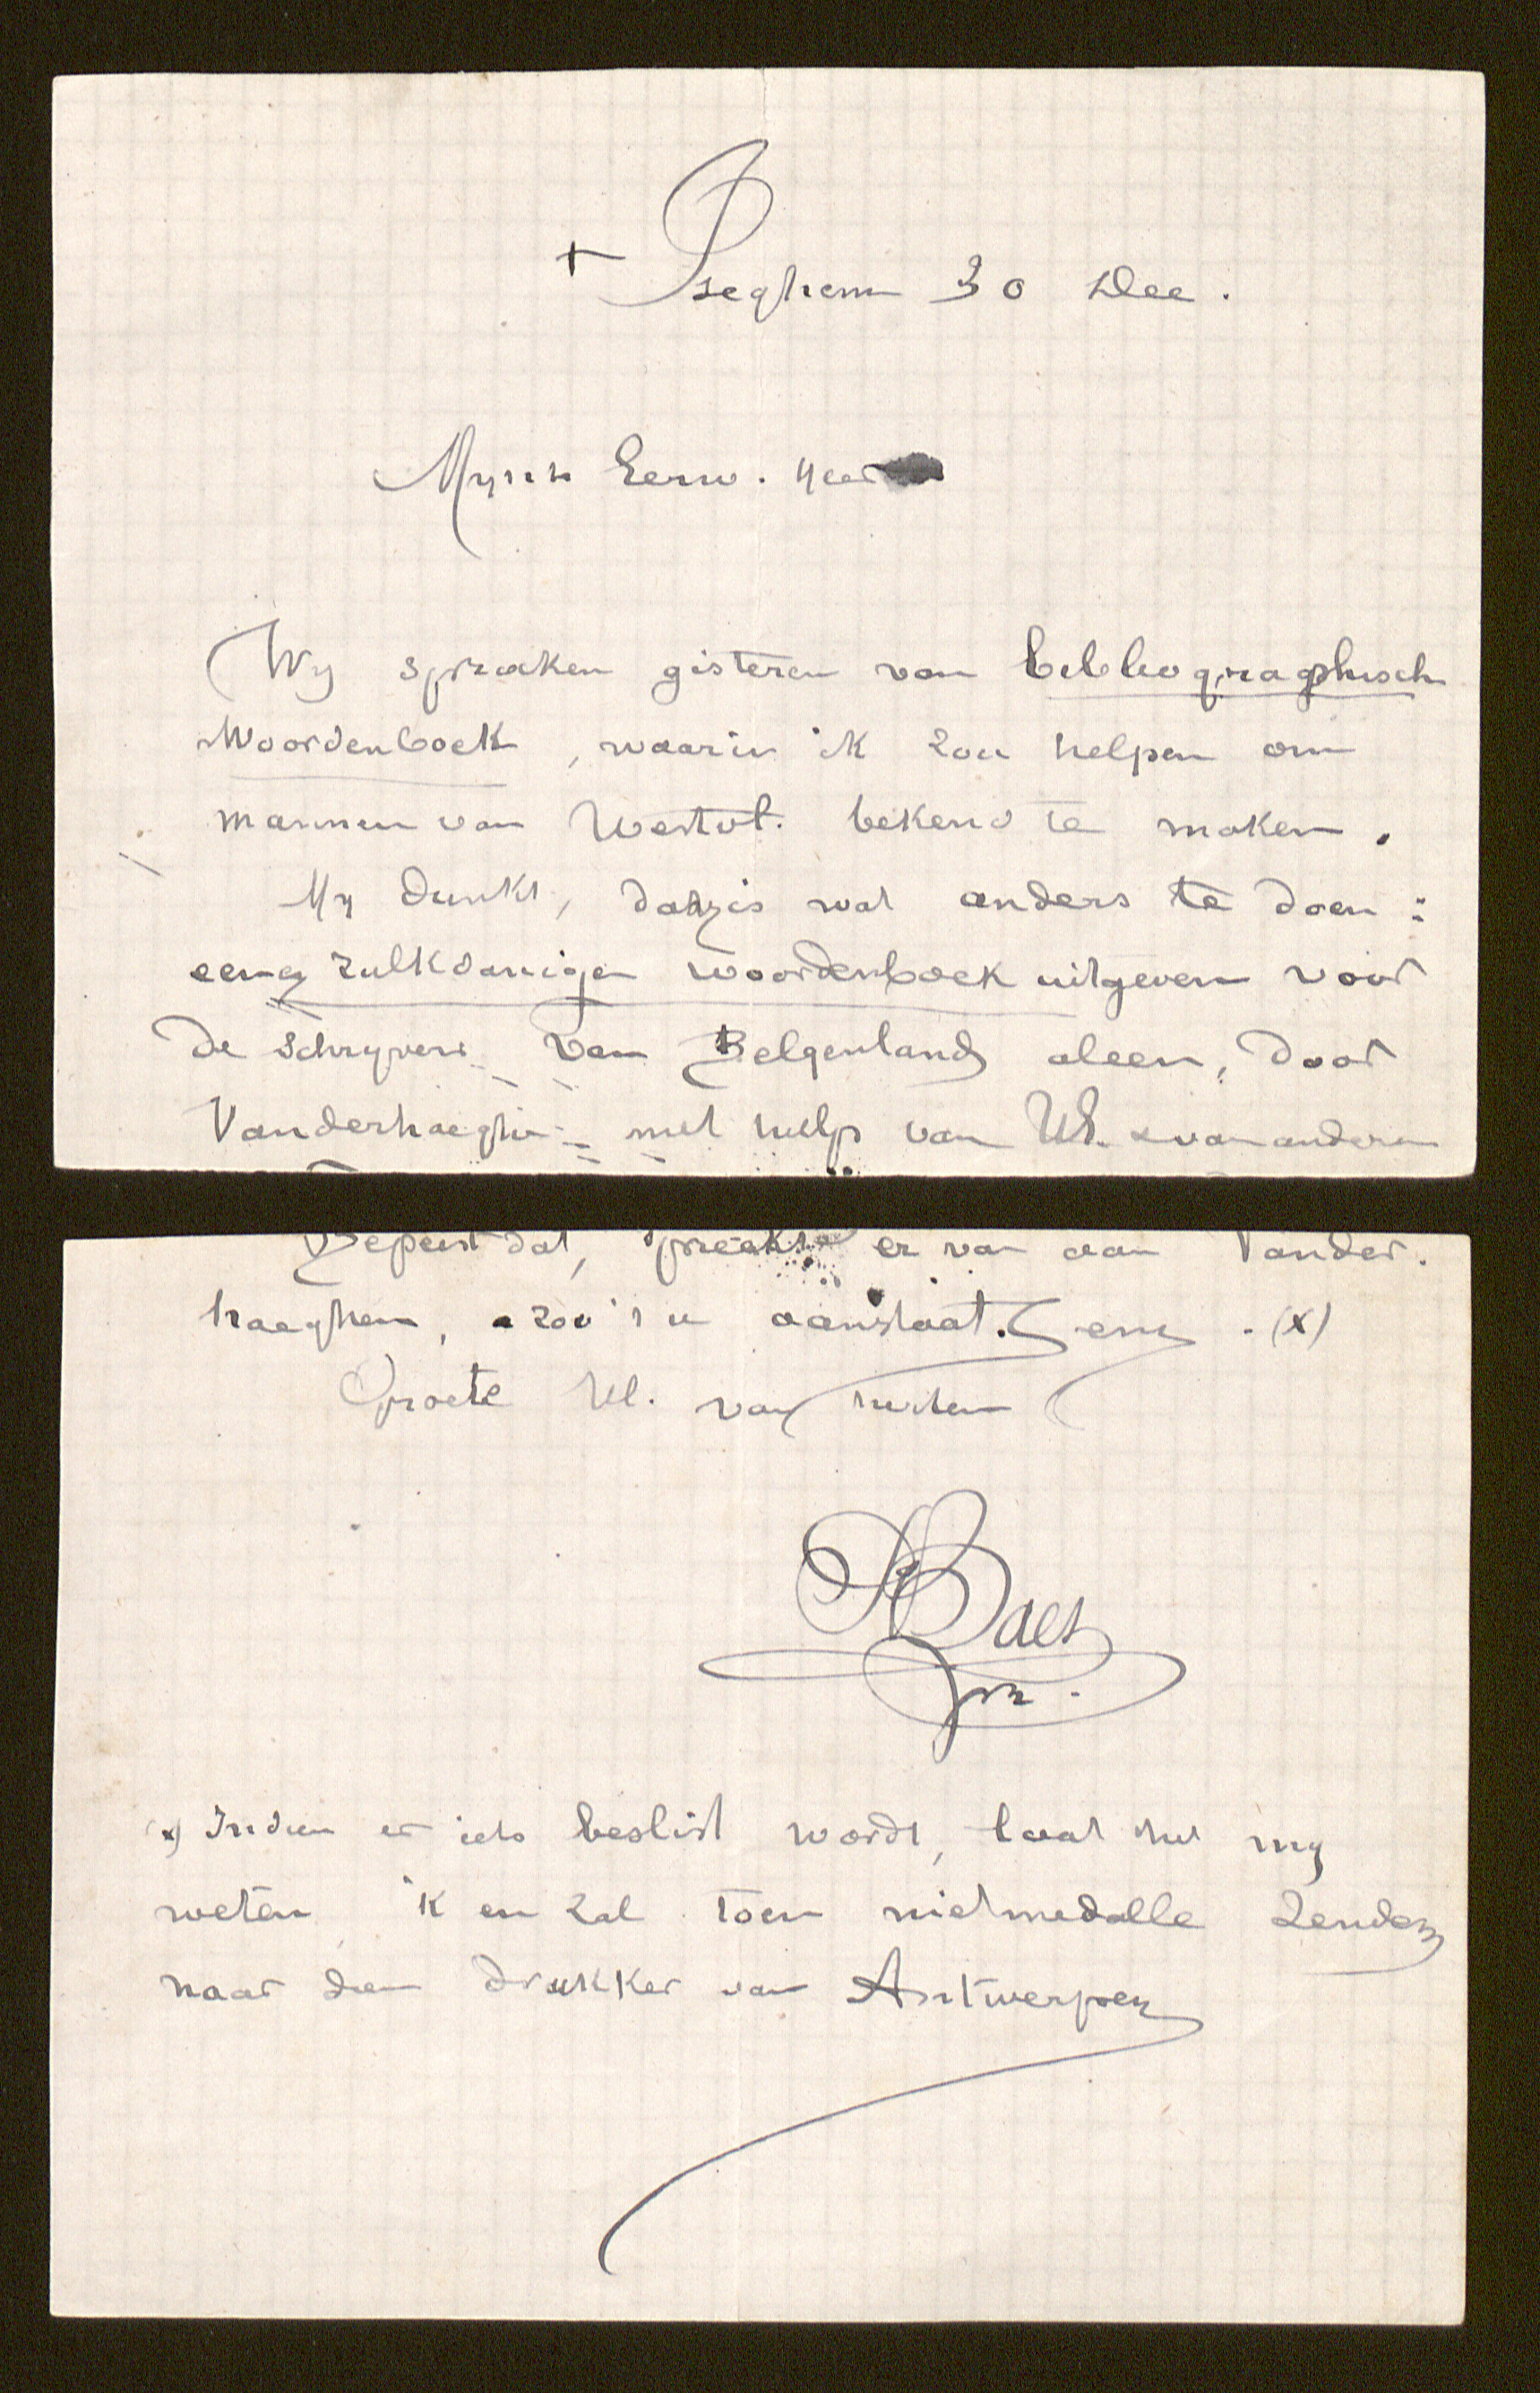 + Iseghem 30 Dec.
Mynh Eerw. Heer
Wy spraken gisteren van bibliographisch
Woordenboek, waarin ik zou helpen om
mannen van Westvl. bekend te maken.
My dunkt, daar is wat anders te doen:
een zulkdanigen woordenboek uitgeven voor
de schryvers van Belgenland aleen, door
Vanderhaeghe met hulp van Ul. & van anderen
Bepeist dat, spreekt er van aan Vander-
haeghen, zoo 't u aanstaat. (x)
Groete Ul. van herten
Baes
pr.
(x) Indien er iets beslist wordt, laat het my
weten ik en zal toen niet medalle zenden
naar den drukker van Antwerpen